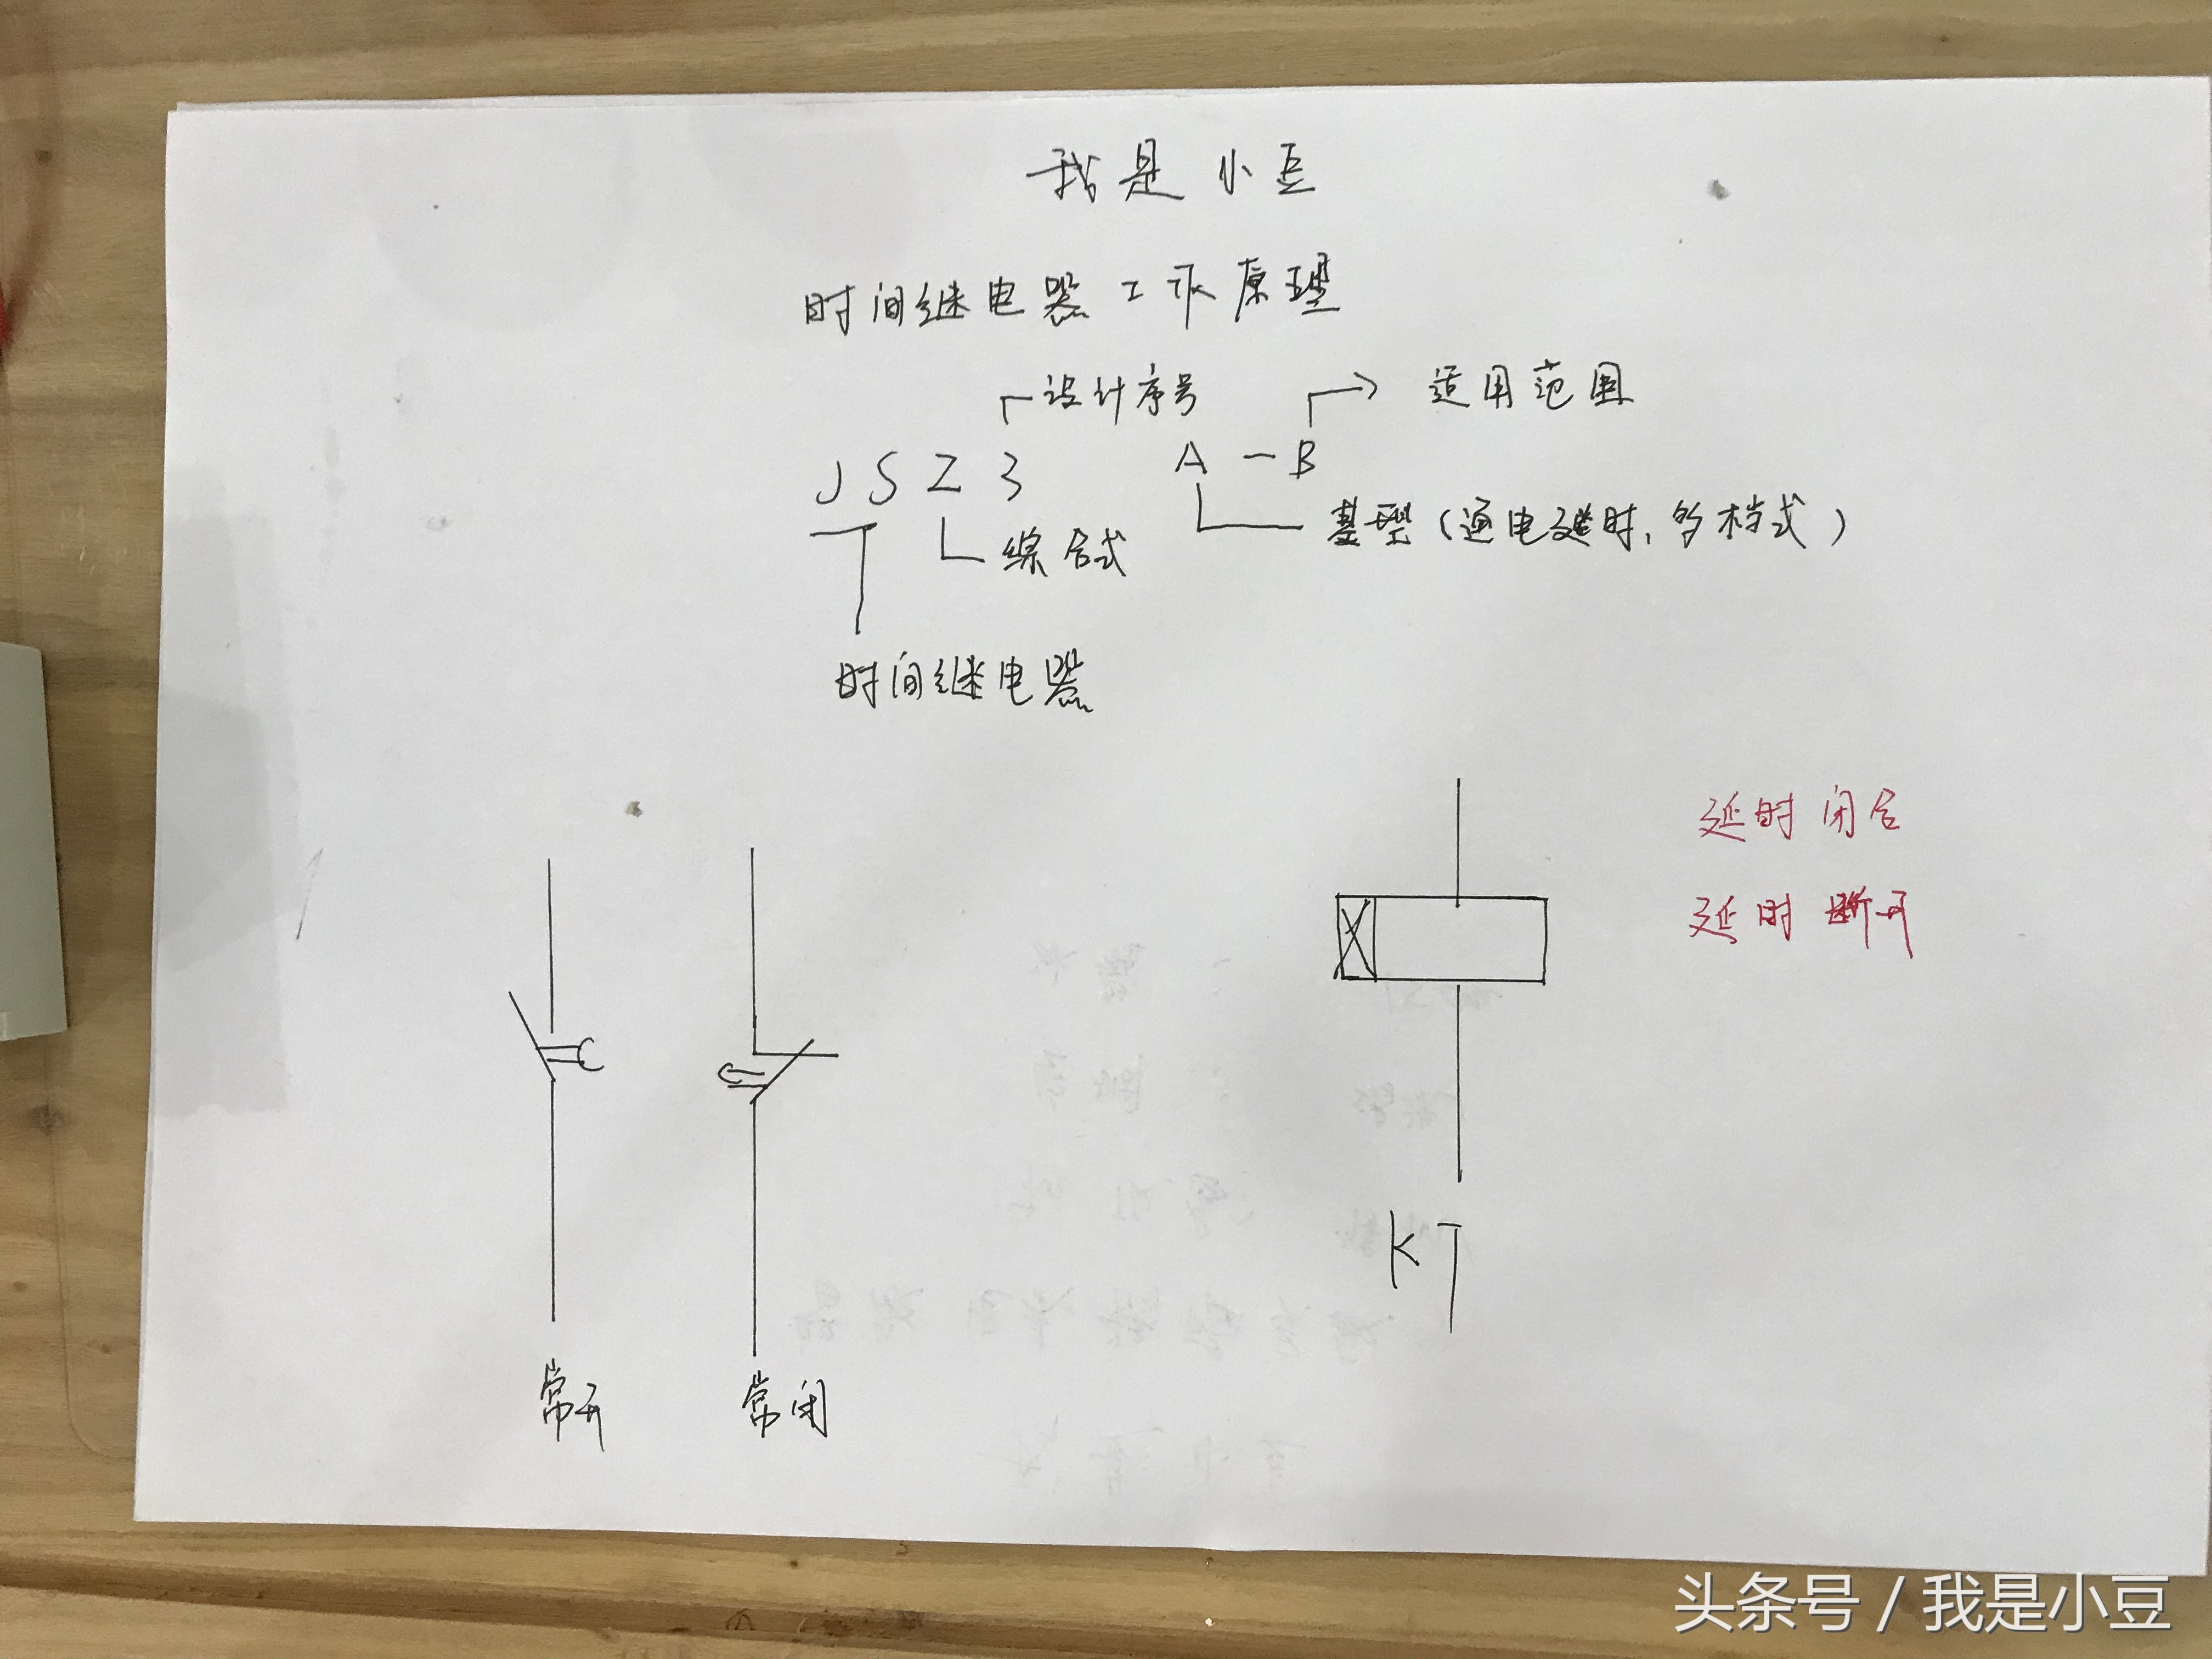 我是小豆
时间继电器工作原理
设计序号
适用范围
JSZ3 A-B
综合式
基型(通电延时,多档式)
时间继电器
延时闭合
延时断开
KT
常开
常闭
头条号 / 我是小豆